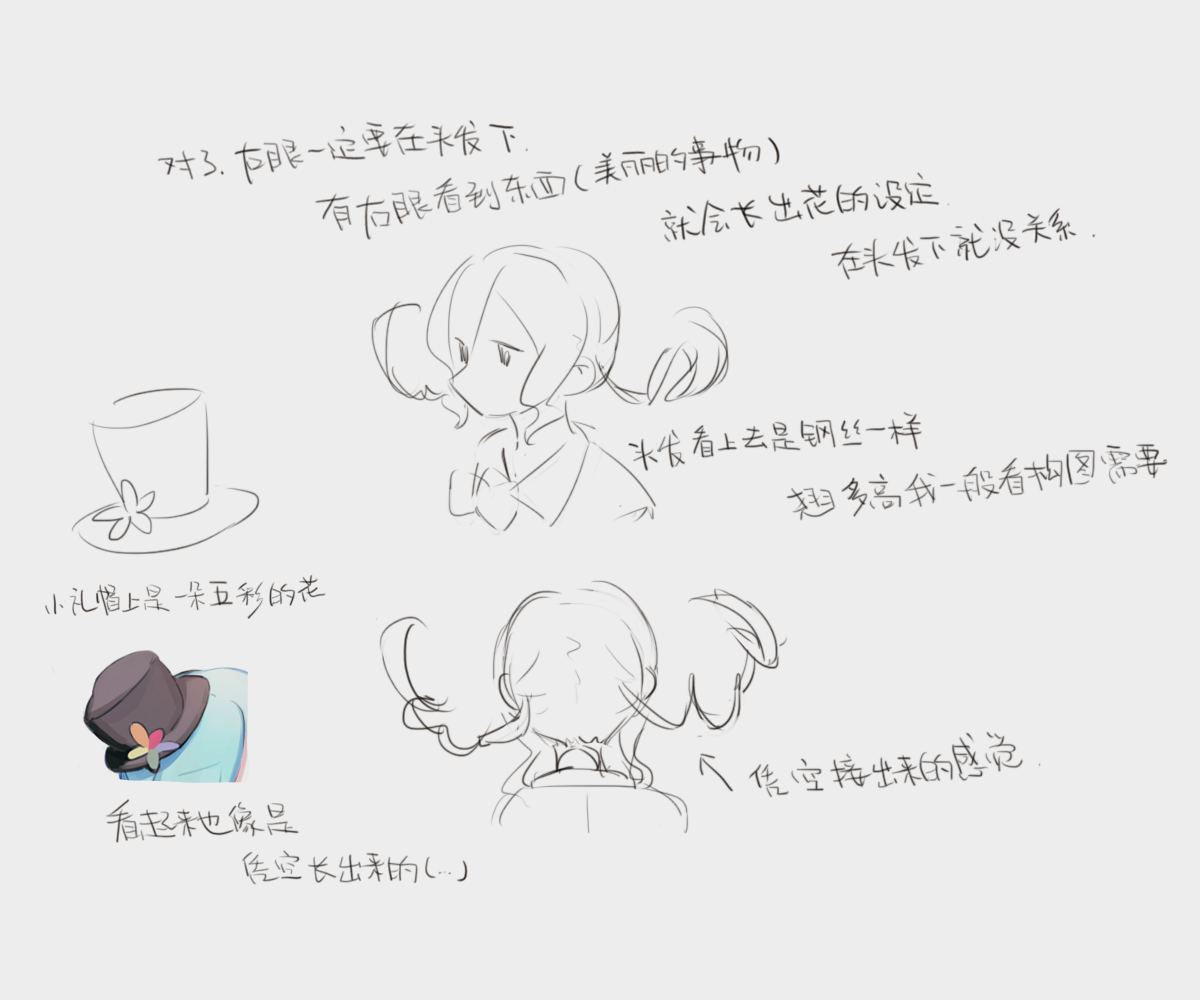 对了.右眼一定要在头发下.
有右眼看到东西(美丽的事物)
就会长出花的设定.
在头发下就没关系.
头发看上去是钢丝一样
翘多高我一般看构图需要
小礼帽上是一朵五彩的花
凭空接出来的感觉.
看起来也像是
凭空长出来的(...)